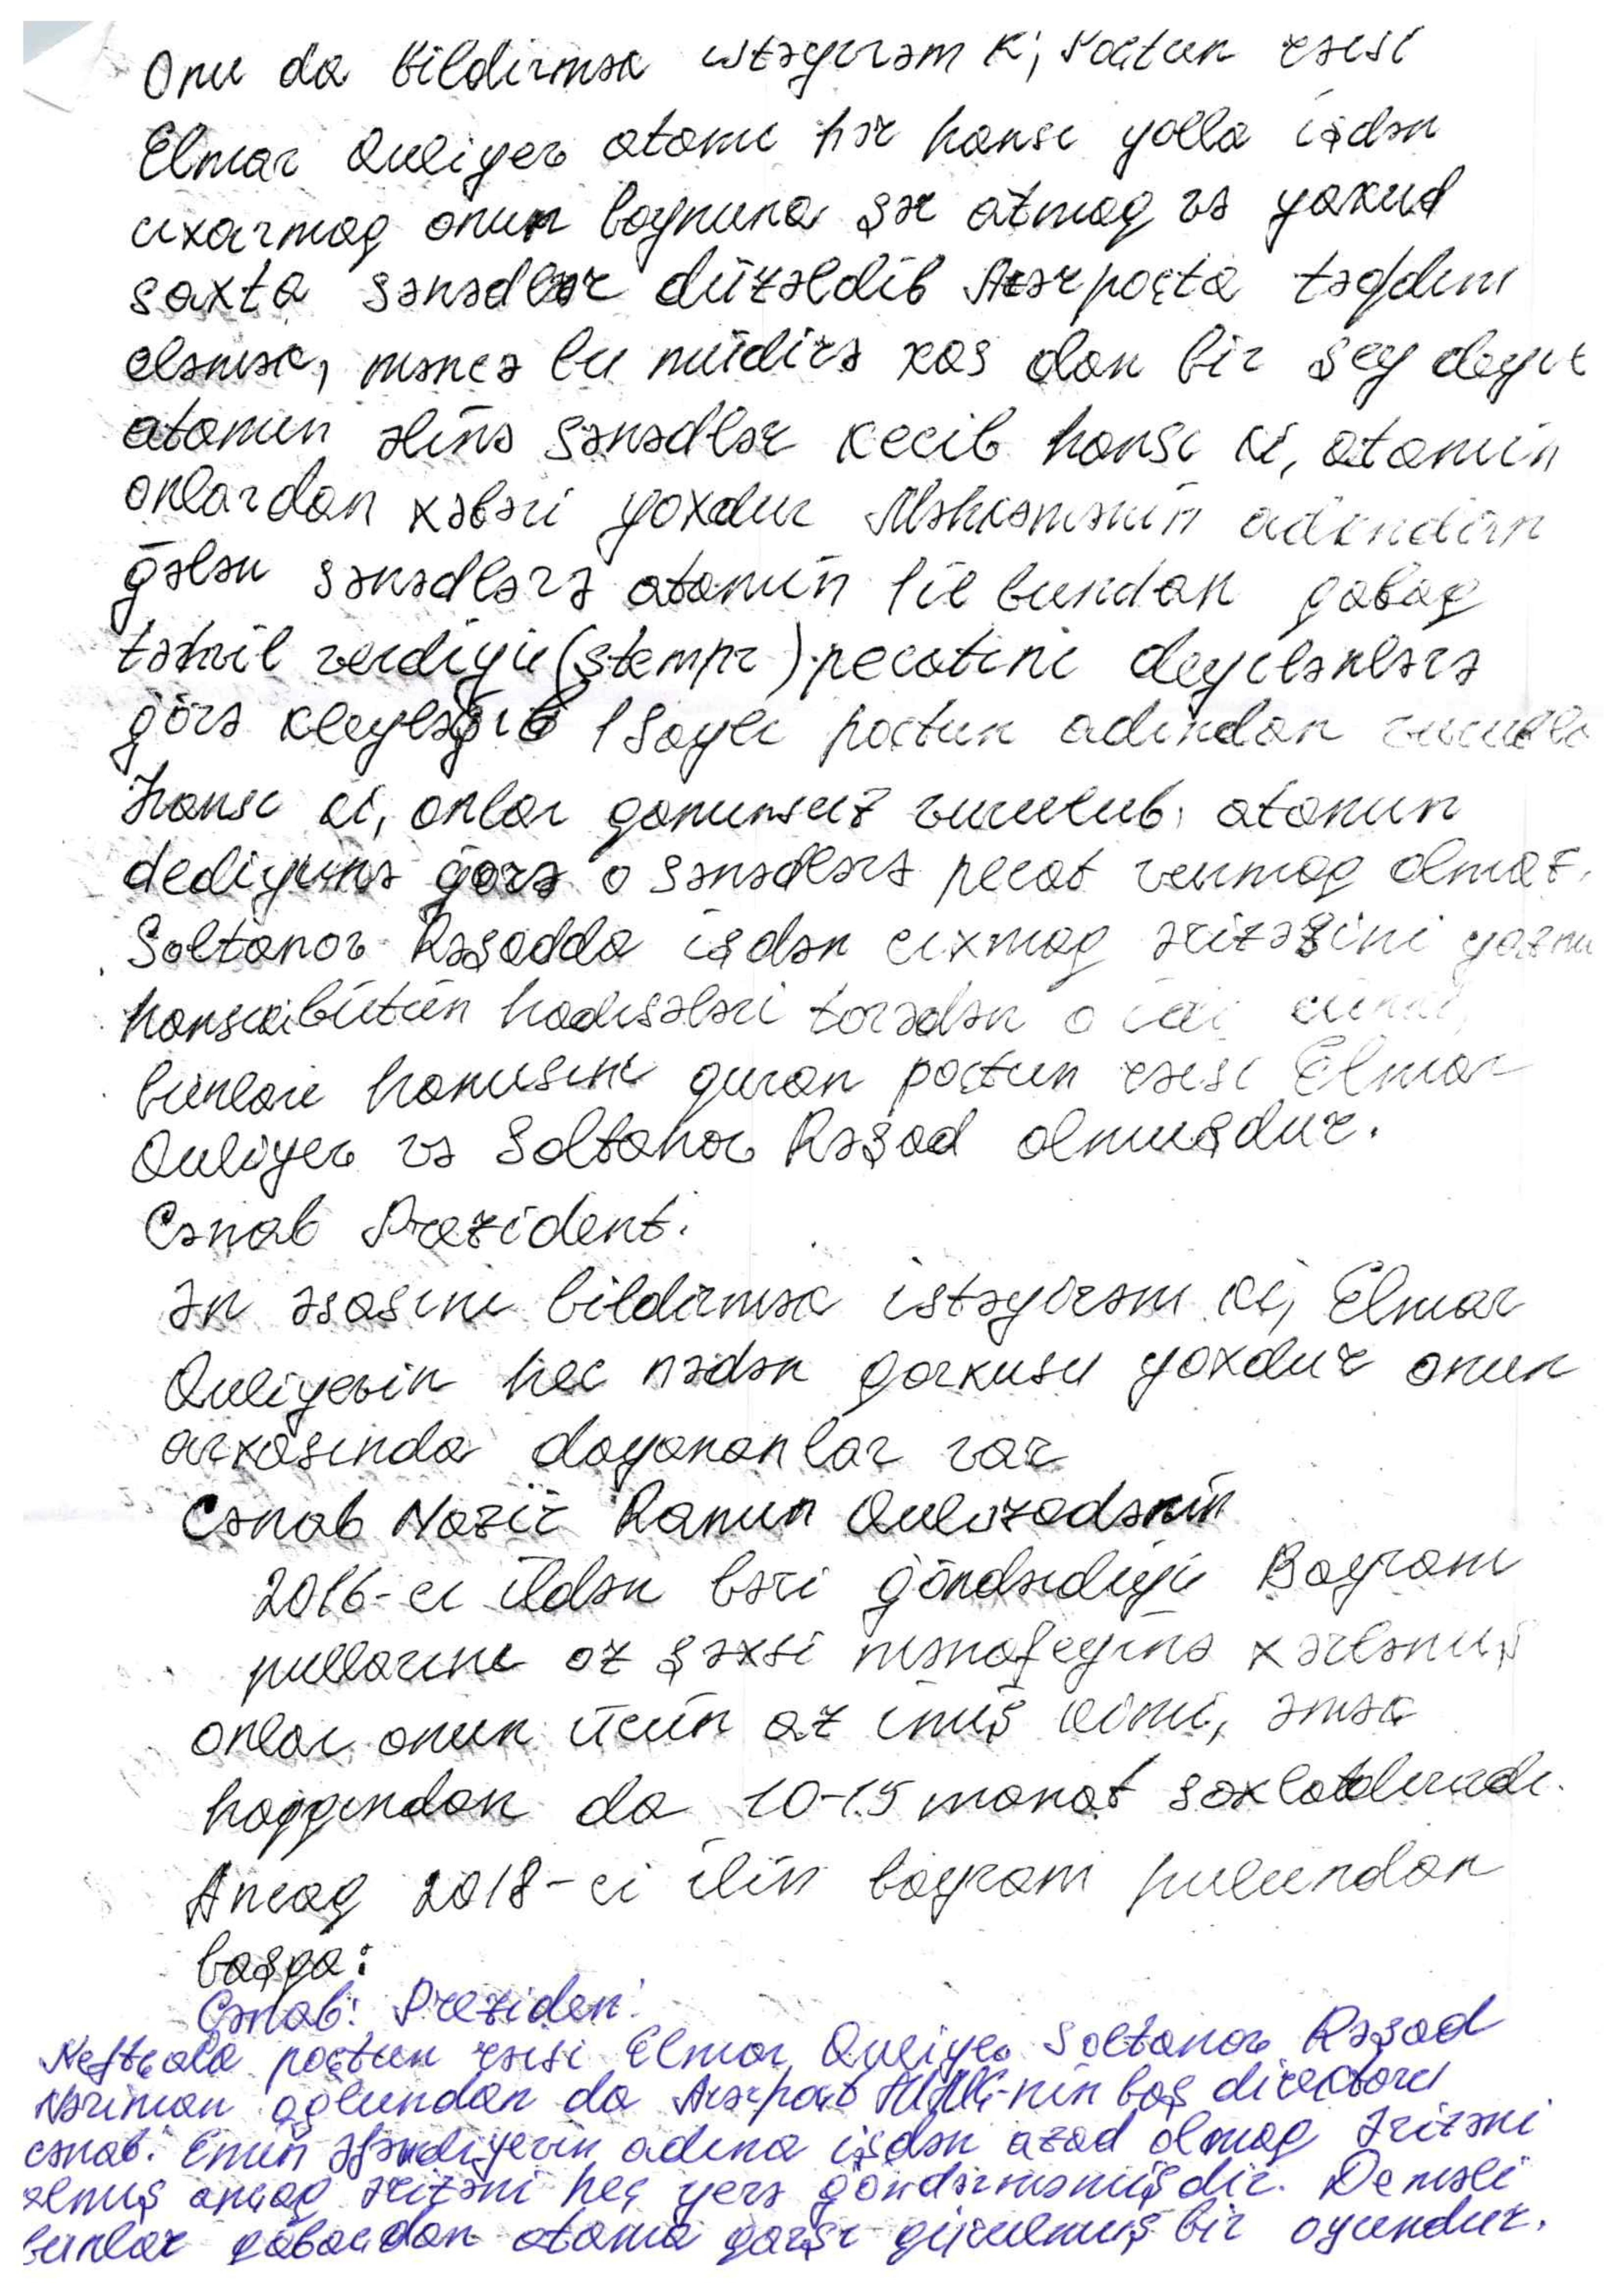 Onu da bildirmək istəyirəm ki, poçtun rəisi
Elmar Quliyev atamı hər hansı yolla işdən
cıxarmag onun boynuna şər atmag və yaxud
saxta sənədlər düzəldib Azərpoçta təqdim
eləmək, məncə bu müdirə xas dan bir şey deyil
atamın əlinə sənədlər kecib hansı ki, atamın
onlardan xəbəri yoxdur Məhkəmənin adından
gələn sənədlərə atamın 1 il bundan gabag
təhvil verdiyi (ştempr) pecatini deyilənlərə
görə kleyləyib 1 Saylı poçtun adından
hansı ki, onlar ganunsuz vurulub, atamın
dediyinə görə o sənədlərə pecat vurmag olmaz.
Soltanov Rəşadda işdən cıxmag ərizəsini
hansı ki bütün hadisələri törədən o idi
bunları hamısını quran poçtun rəisi Elmar
Quliyev və Soltanov Rəşad olmuşdur.
Cənab Prezident.
Ən əsasını bildirmək istəyirəm ki, Elmar
Quliyevin hec nədən qorxusu yoxdur onun
arxasında dayananlar var
Cənab Nazir Ramin Quluzadənin
2016-cı ildən bəri göndərdiyi Bayram
pullarını oz şəxsi mənafeyinə xərləmiş
onlar onun ücün az imiş kimi, əmək
haqqından da 10-15 manat saxlatdırırdı.
Ancag 2018-ci ilin bayram pulundan
başqa:
Cənab: Preziden
Neftçala poçtun rəisi Elmar Quliyev Soltanov Rəşad
Nəriman oğlundan da Azərpoçt MMC-nin baş direktoru
cənab: Emin Əfəndiyevin adına işdən azad olmag ərizəni
almış ançag ərizəni heç yerə göndərməmişdir. Deməli
bunlar qabacdan atama qarşı qurulmuş bir oyundur.